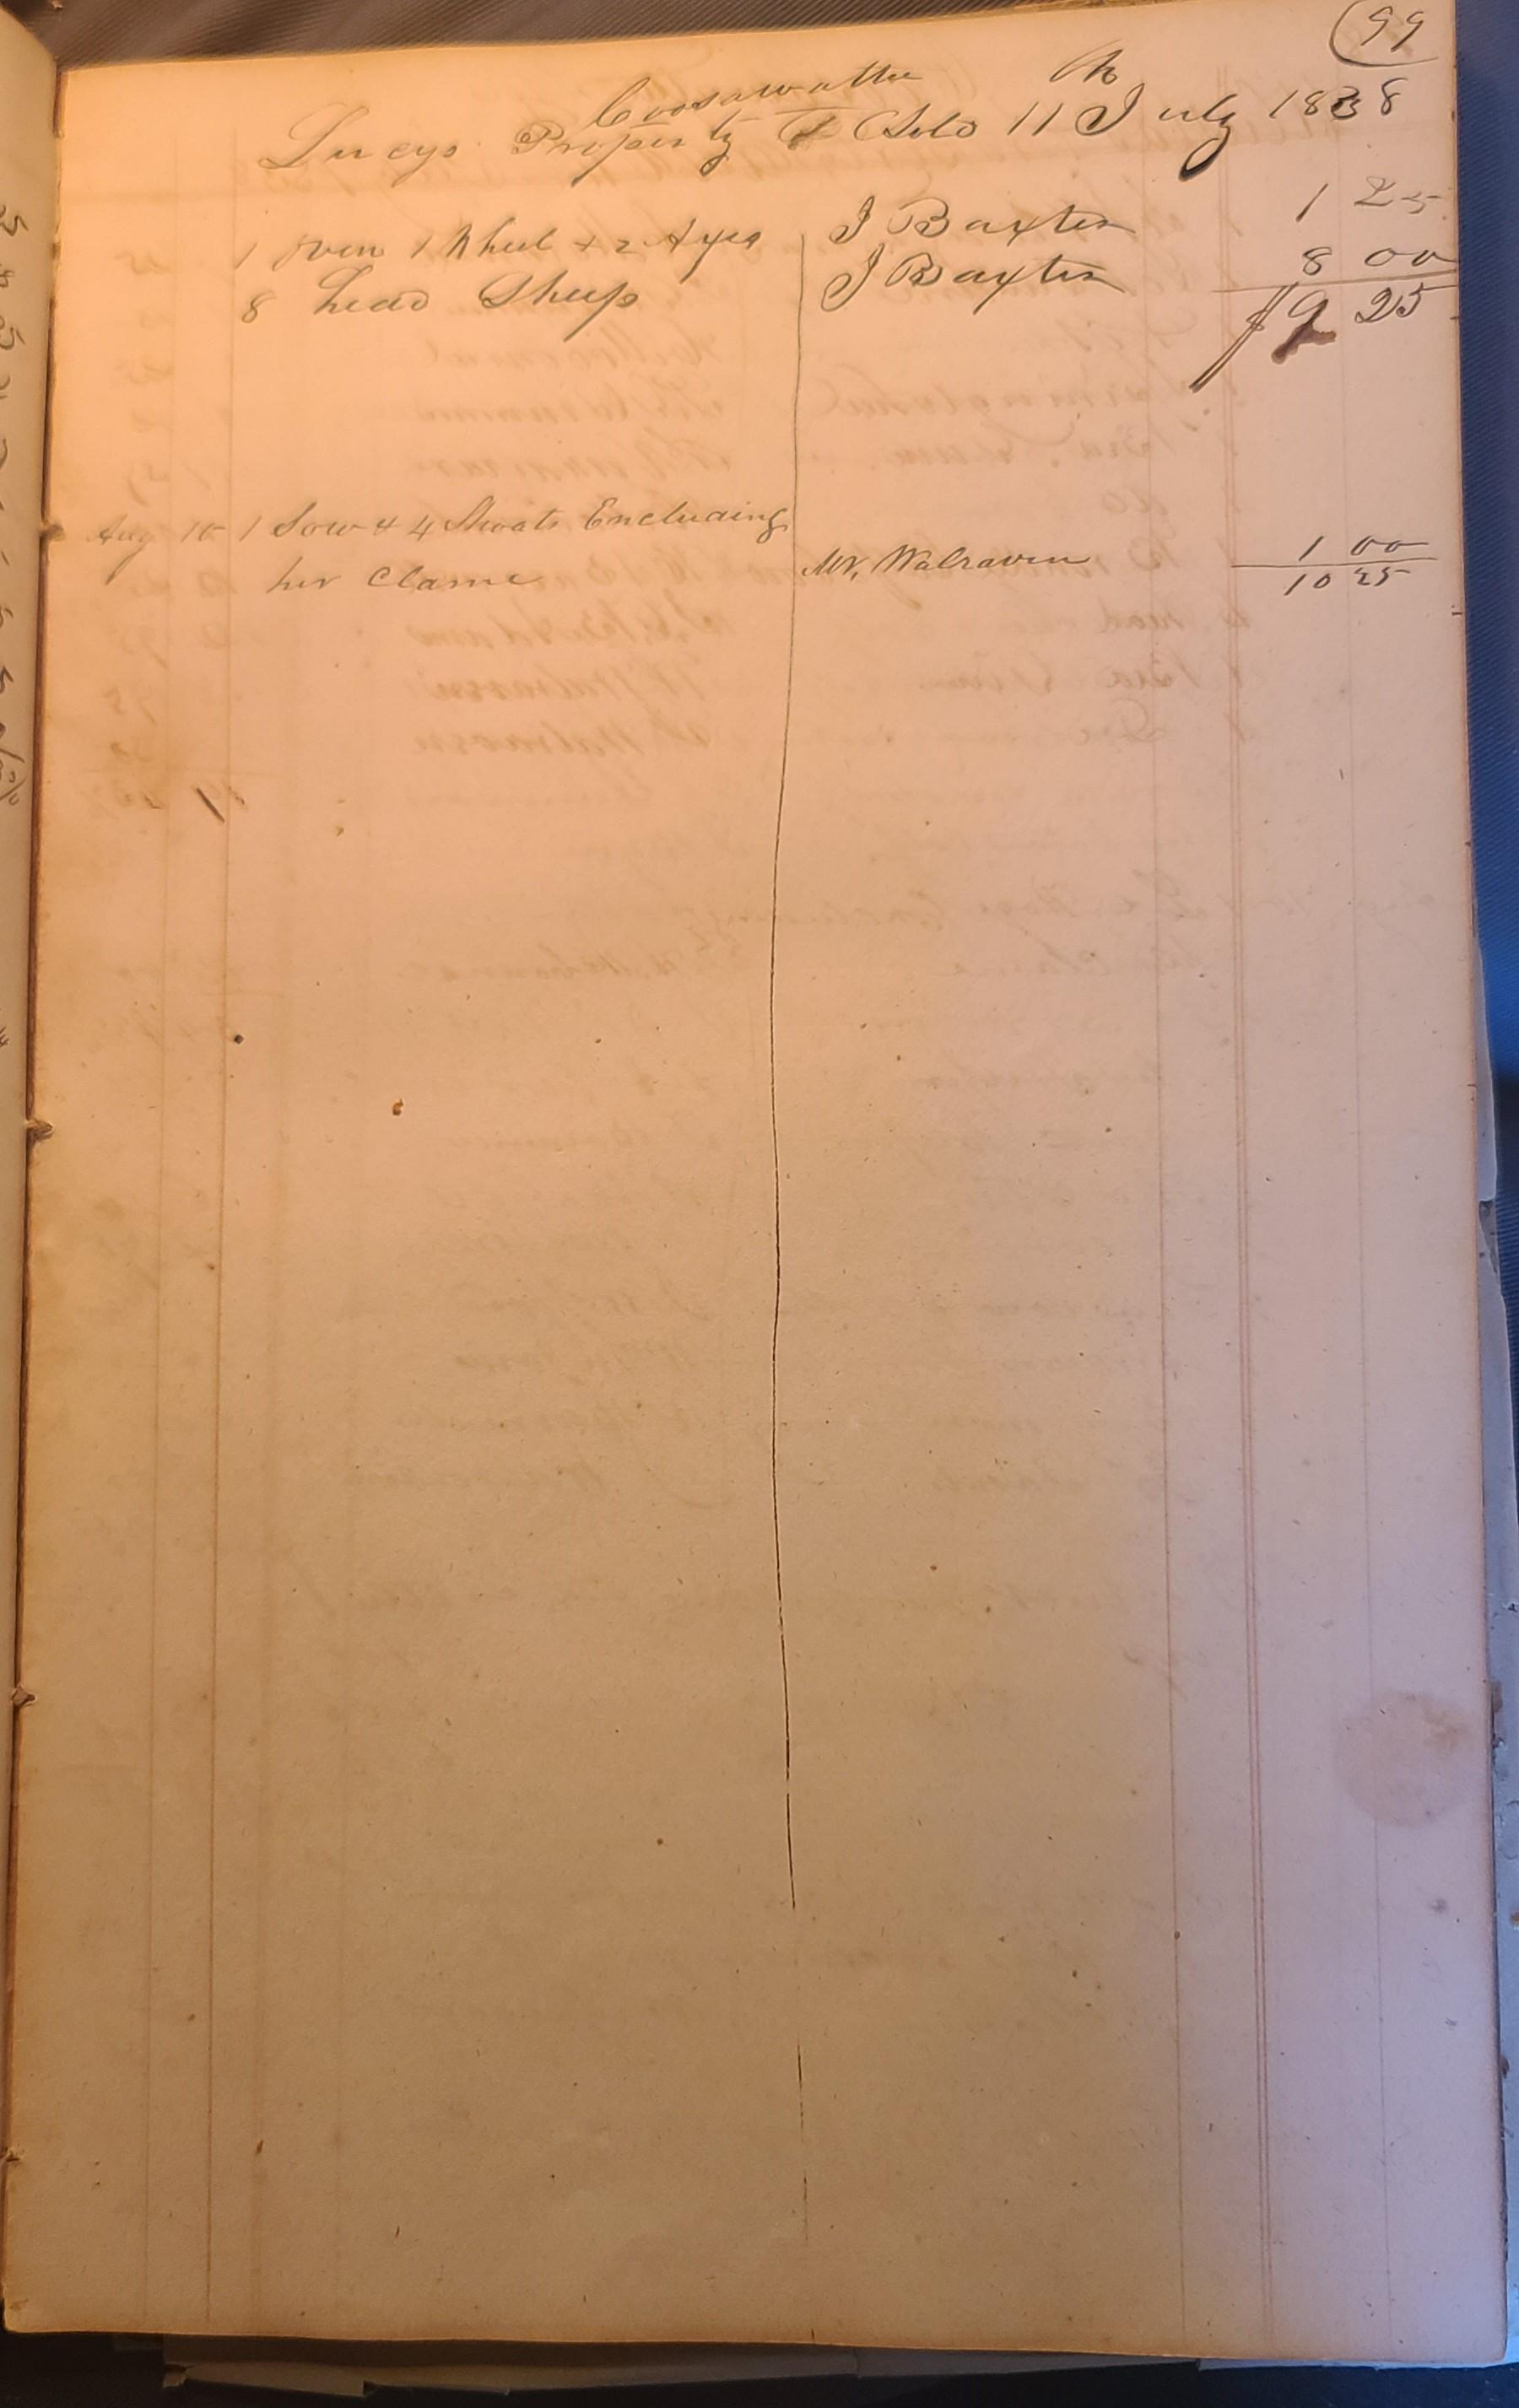 99
Coosawattee
Lucys Property Sold 11th July 1838
1 oven 1 Wheel + 2 Axes J Baxter 1 25
8 head Sheep J Baxter 8 00
$9 25
Aug 10 1 Sow & 4 Shoats Encluding
her Clame Mr. Walraven 1 00
10 25